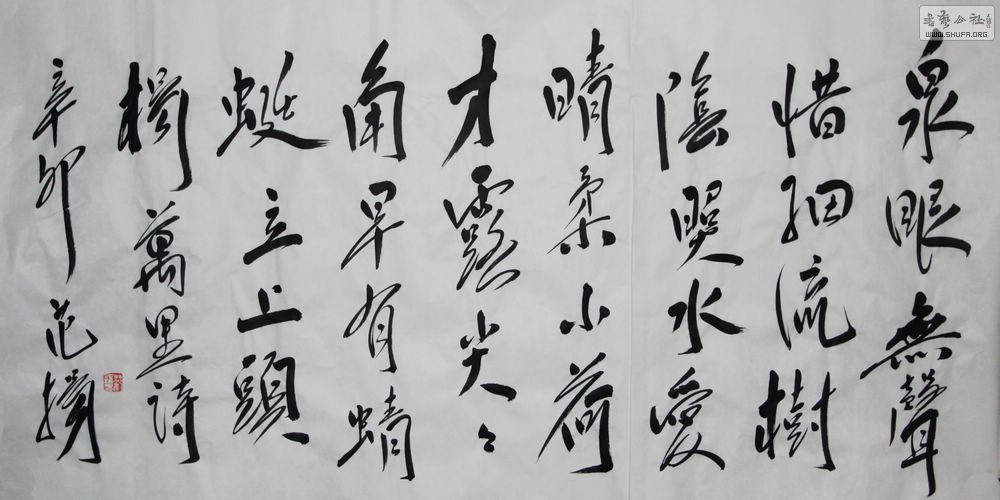 泉眼無聲
惜細流樹
陰照水愛
晴柔小荷
才露尖々
角早有蜻
蜓立上頭
楊萬里詩
辛卯范
書藝公社
WWW.SHUFA.ORG